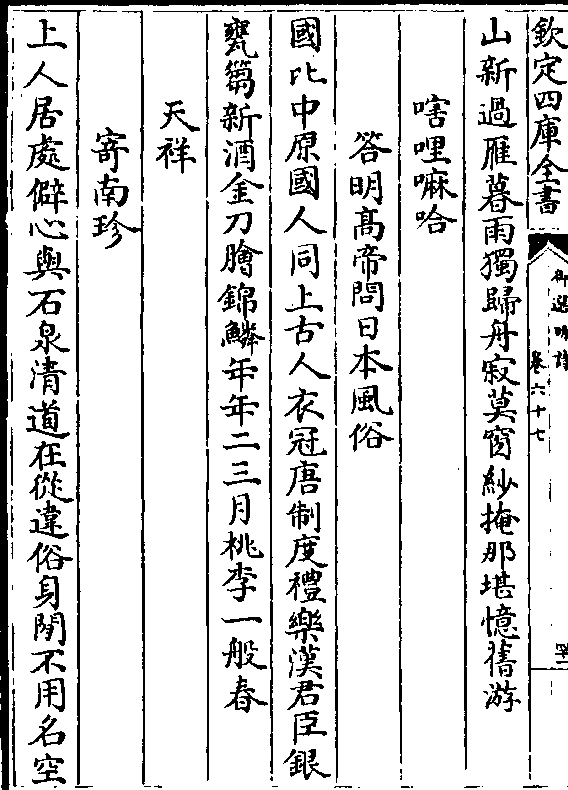 欽定四庫全書
御選明詩
卷六十七
山新過雁暮雨獨歸舟寂莫窗紗掩那堪憶舊游
嗐哩嘛哈
答明髙帝問日本風俗
國比中原國人同上古人衣冠唐制度禮樂漢君臣銀
甕篘新酒金刀膾錦鱗年年二三月桃李一般春
天祥
寄南珍
上人居處僻心與石泉清道在從違俗身閒不用名空